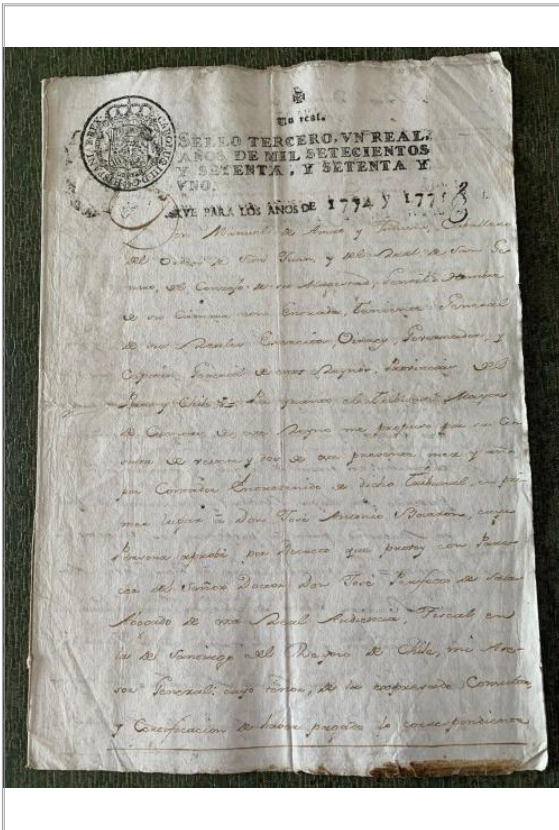 Un real.
SELLO TERCERO, VN REAL,
AÑOS DE MIL SETECIENTOS
Y SETENTA, Y SETENTA Y
VNO.
PARA LOS AÑOS DE 1774 y 1775
Don Manuel de Amat y Junient, Caballero
del Orden de San Juan, y del Real de San Ge
naro, del Consejo de su Magestad, Gentil Hombre
de su Camara con Entrada, Teniente General
de sus Reales Exercitos, Virrey, Governador, y
Capitan General de estos Reynos, Provincias del
Peru y Chile Por quanto el Tribunal Mayor
de Cuentas de este Reyno me propuso por su Con
sulta de veinte y dos de este presente mes y año
por Contador Entretenido de dicho Tribunal, en pri
mer lugar a Don José Antonio
Persona aprobé por Decreto que provey con Pare
cer del Señor Doctor Don José Perfecto de Salas
Abogado de esta Real Audiencia, Fiscal en
la de Santiago del Reyno de Chile, mi Ase
sor General: cuyo tenor, de la expresada Consulta,
y Certificacion de haver pagado lo correspondiente